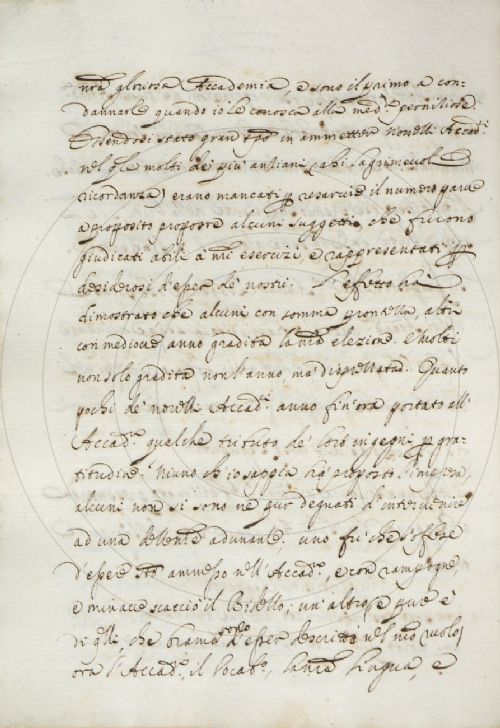 nrã gloriosa Accademia, e sono il primo a con-
dannarle quando io le conosca alla med.ª
stato gran tpõ in ammetter novelli Accad.ci
nel qle molti dei più anziani (ahi lagrimevole
ricordanza) erano mancati p resarcire il numero parve
a proposito proporre alcuni suggetti, che furono
giudicati abili a nri esercizi, e rappresentati p
desiderosi d'esser de' nostri. L'effetto ha
dimostrato, che alcuni con somma prontezza, altri
con mediocre anno gradita la nrã elezione. e molti
non solo gradita non l'anno ma disprezzata. Quanto
pochi de' novelli Accad.ci anno fin'ora portato all'
Accad.ª qualche tributo de' loro ingegni p gra-
titudine. Niuno ch'io sappia ha proposto l'impresa,
alcuni non si sono ne pur degnati d'intervenire
ad una delle nrẽ adunanze. uno fu che s'offese
d'essere stõ ammesso nell'Accad.ª, e con rampogne,
e minacce scacciò il Bidello; un altro
di qlli, che bramavano d'esser descritti nel nrõ ruolo,
ora l'Accad.ª, il Vocab.º, la nrã lingua, e